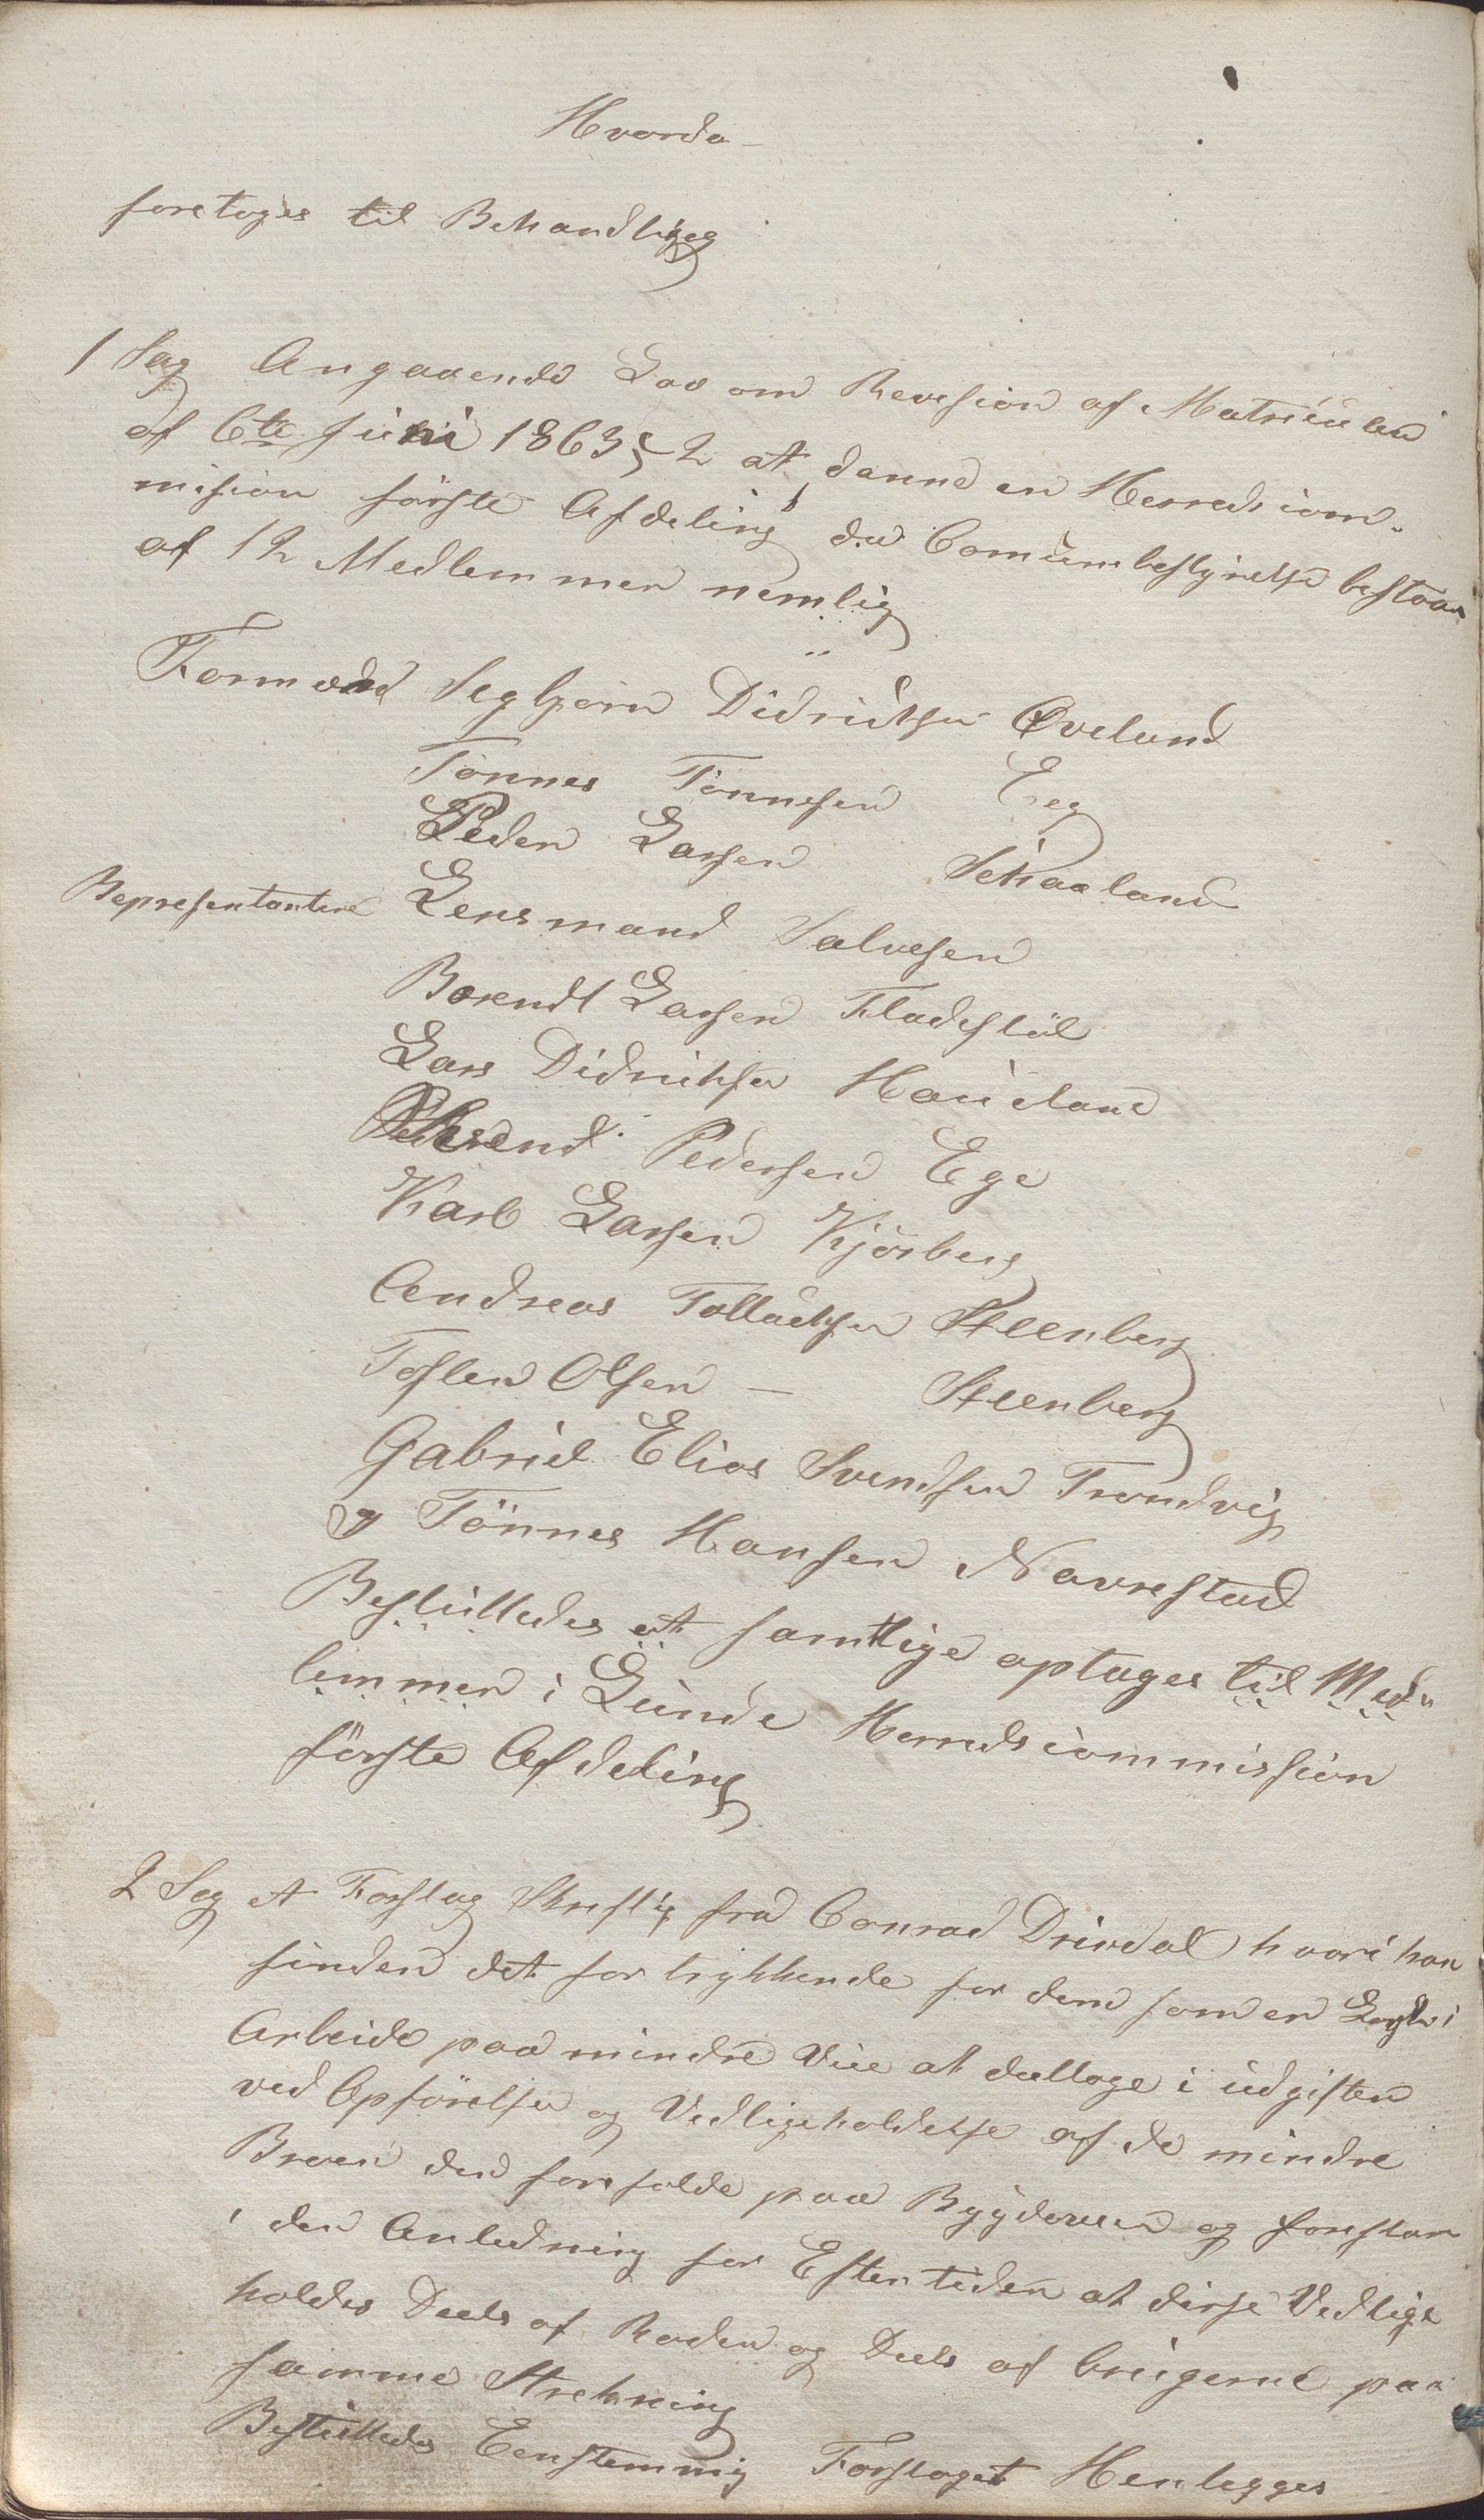 Hvorda
foretoges til Behandling
1 Sag Angaaende Lov om Revision af Matriculen
af 6te Juni 1863 § 2 at danne en Herredscom-
mision første Afdeling da Comunbestyrelse bestaar
af 12 Medlemmer nemlig
Formænd Segbjørn Didriksen Øveland
Tønnes Tønnesen Eeg
Peder Larsen Schaaland
Representantere Lensmand Salvesen
Berendt Larsen Fladestøl
Lars Didriksen Haueland
Behrend Pedersen Ege
Karl Larsen Kjørberg
Andreas Tollachsen Steenberg
Teslev Olsen — Steenberg
Gabriel Elias Svendsen Trondvig
og Tønnes Hansen Navrestad
Besluttedes at samtlige optages til Med-
lemmer i Lunde Herredscommission
første Afdeling
2 Sag et Forslag Skriftlig fra Conrad Drivdal hvori han
finder det for trykkende for dem som er Lagt i
Arbeide paa mindre Veie at deeltage i udgiften
ved Opførelse og Vedligeholdelse af de mindre
Broer der forefalde paa Bygdeveie og foreslaar
i den Anledning for Eftertiden at disse Vedlige
holdes Deels af Roden og Deels af brugerne paa
samme Strekning
Besluttedes Eenstemmig Forslaget Henlegges